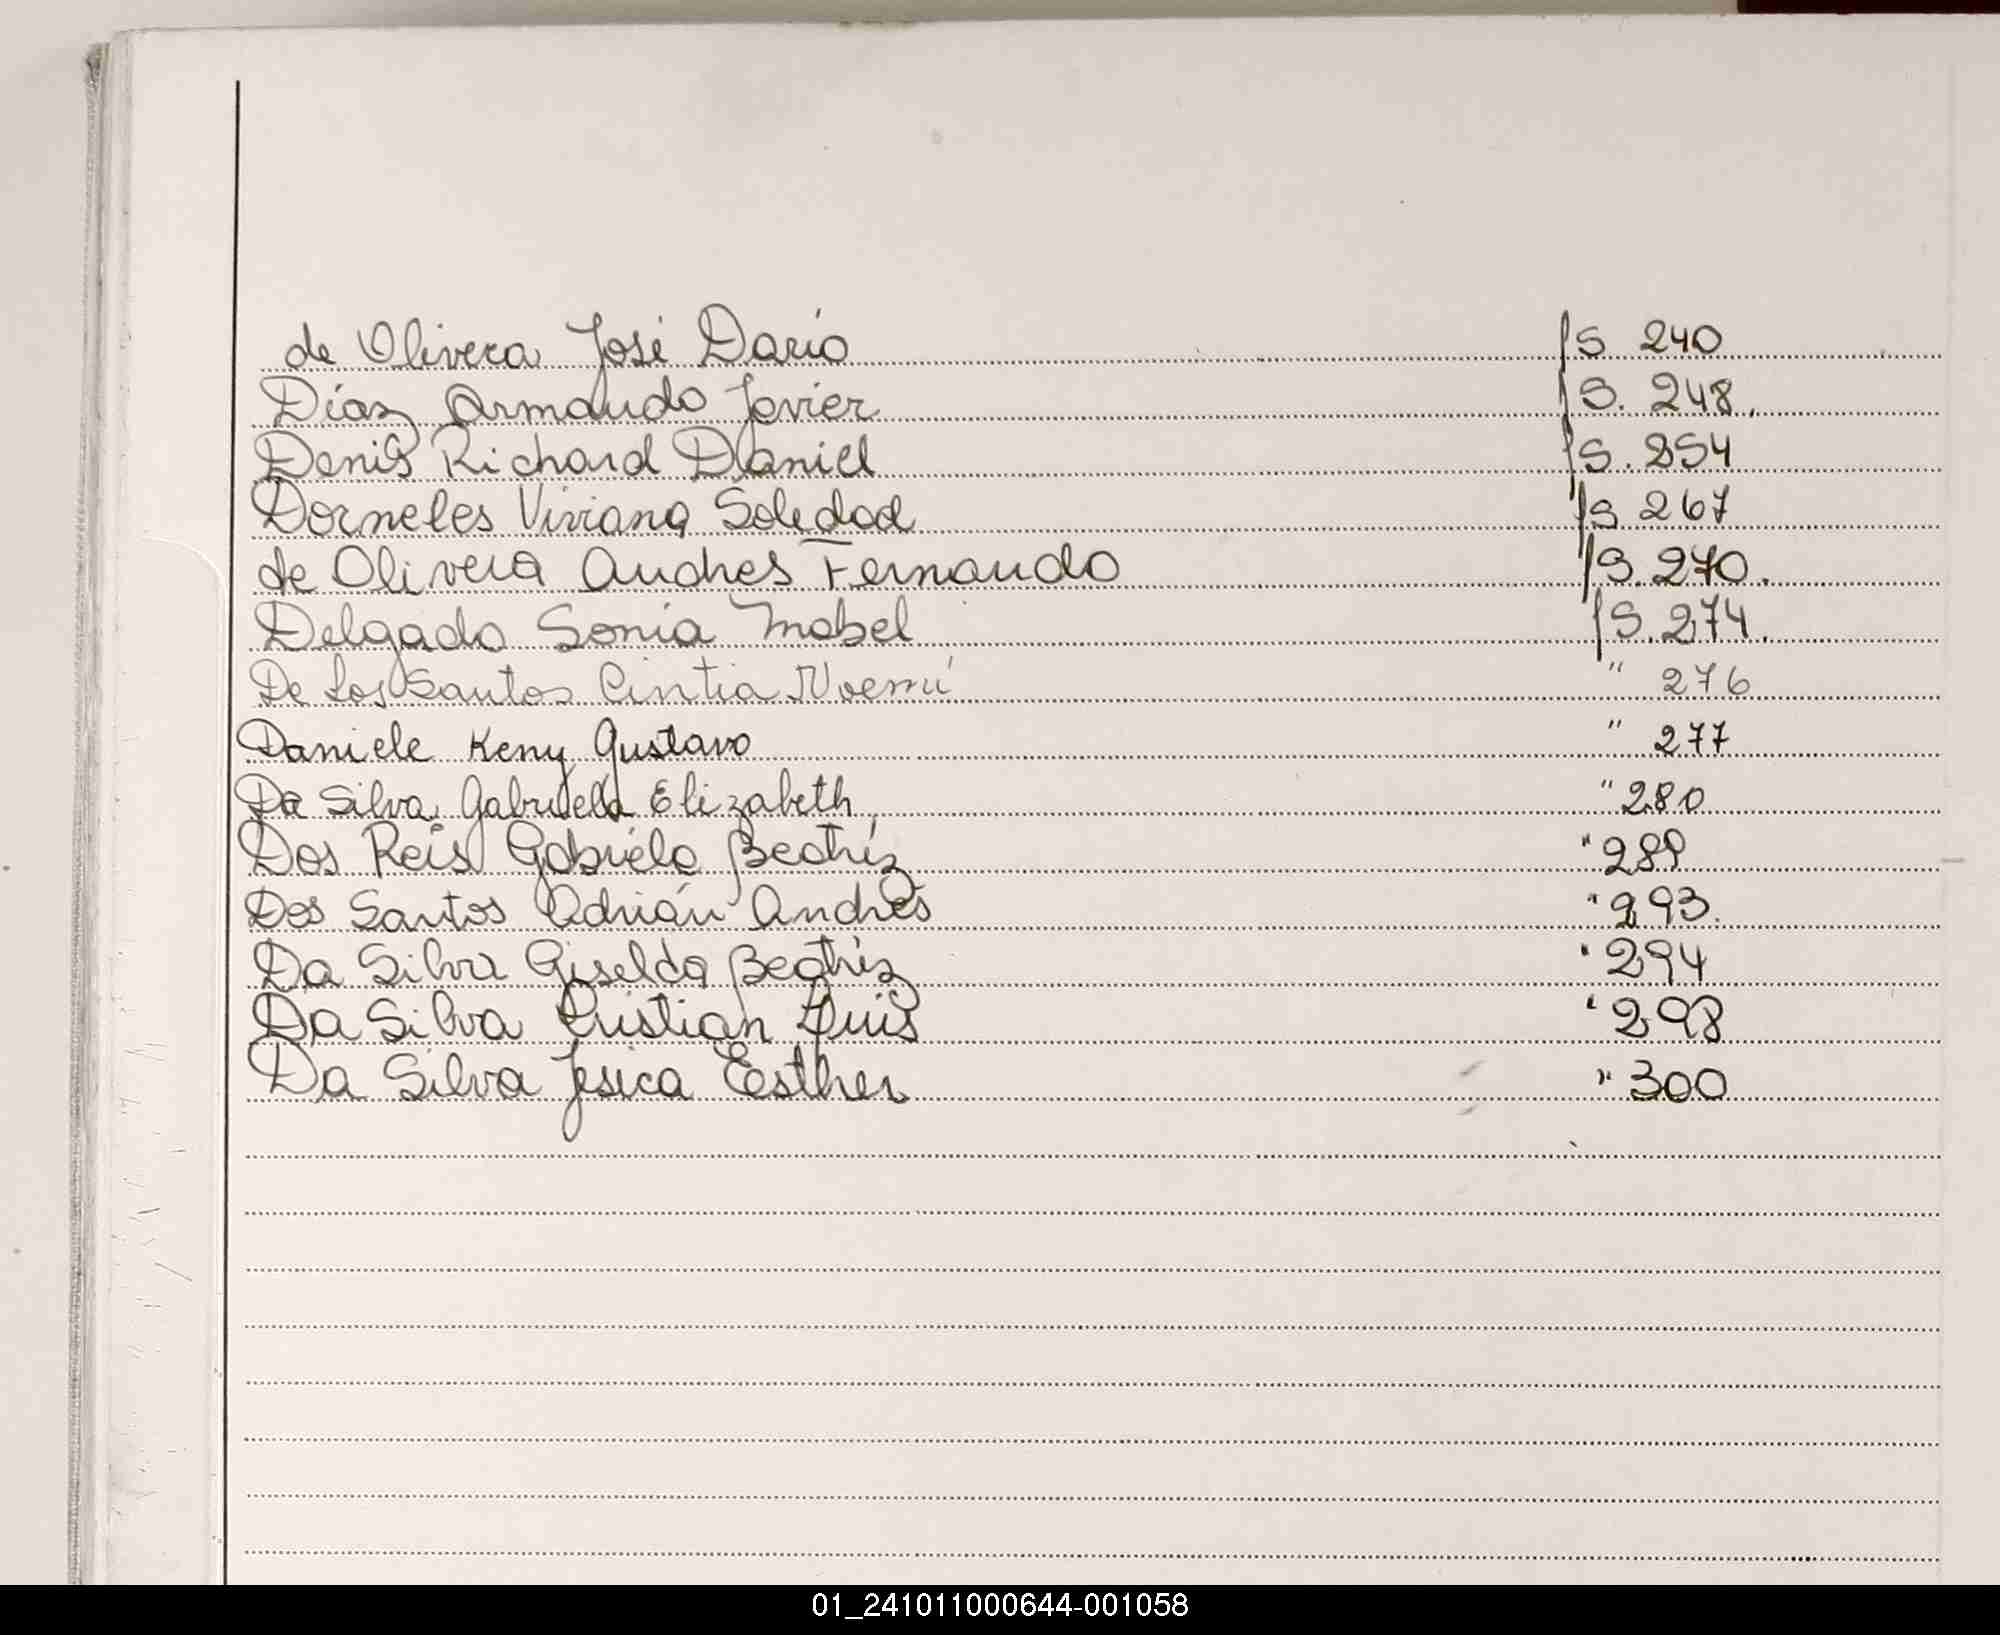 de Olivera José Darío fs 240
Díaz Armando Javier fs. 248.
Denis Richard Daniel fs. 254
Dorneles Viviana Soledad fs 267
de Olivera Andres Fernando fs. 270.
Delgado Sonia Mabel fs. 274.
De Los Santos Cintia Noemí " 276
Daniele Keny Gustavo " 277
Da Silva Gabriela Elizabeth " 280
Dos Reis Gabriela Beatríz " 289
Dos Santos Adrián Andrés " 293.
Da Silva Giselda Beatríz " 294
Da Silva Cristian Luis " 298
Da Silva Jesica Esther " 300
01_241011000644-001058